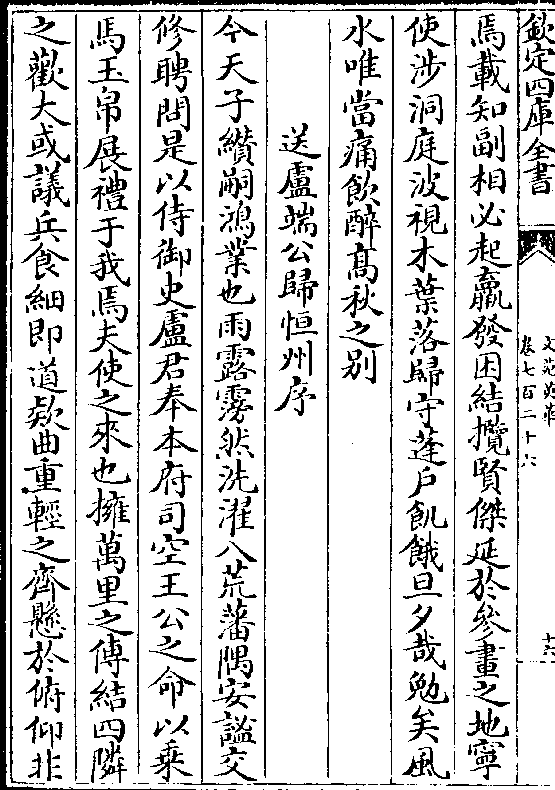 欽定四庫全書
文苑英華
卷七百二十六
十六
焉載知副相必起羸發困結攬賢傑延於參畫之地寧
使涉洞庭波視木葉落歸守蓬戶飢餓旦夕哉勉矣風
水唯當痛飲醉高秋之别
送盧端公歸恒州序
今天子纘嗣鴻業也雨露霶然洗濯八荒藩隅安謐交
修聘問是以侍御史盧君奉本府司空王公之命以乗
馬玉帛展禮于我焉夫使之來也擁萬里之傳結四隣
之歡大或議兵食細即道欵曲重輕之齊懸於俯仰非